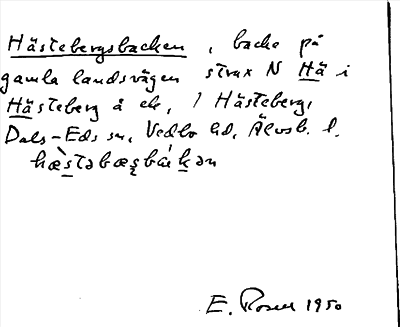 Hästebergsbacken, backe på
gamla landsvägen strax N Hä i
Hästeberg å ek, / Hästeberg,
Dals-Eds sn, Vedbo hd, Älvsb. l.
hæ̀stəbæʂbák̠ən
E. Rosell 1950